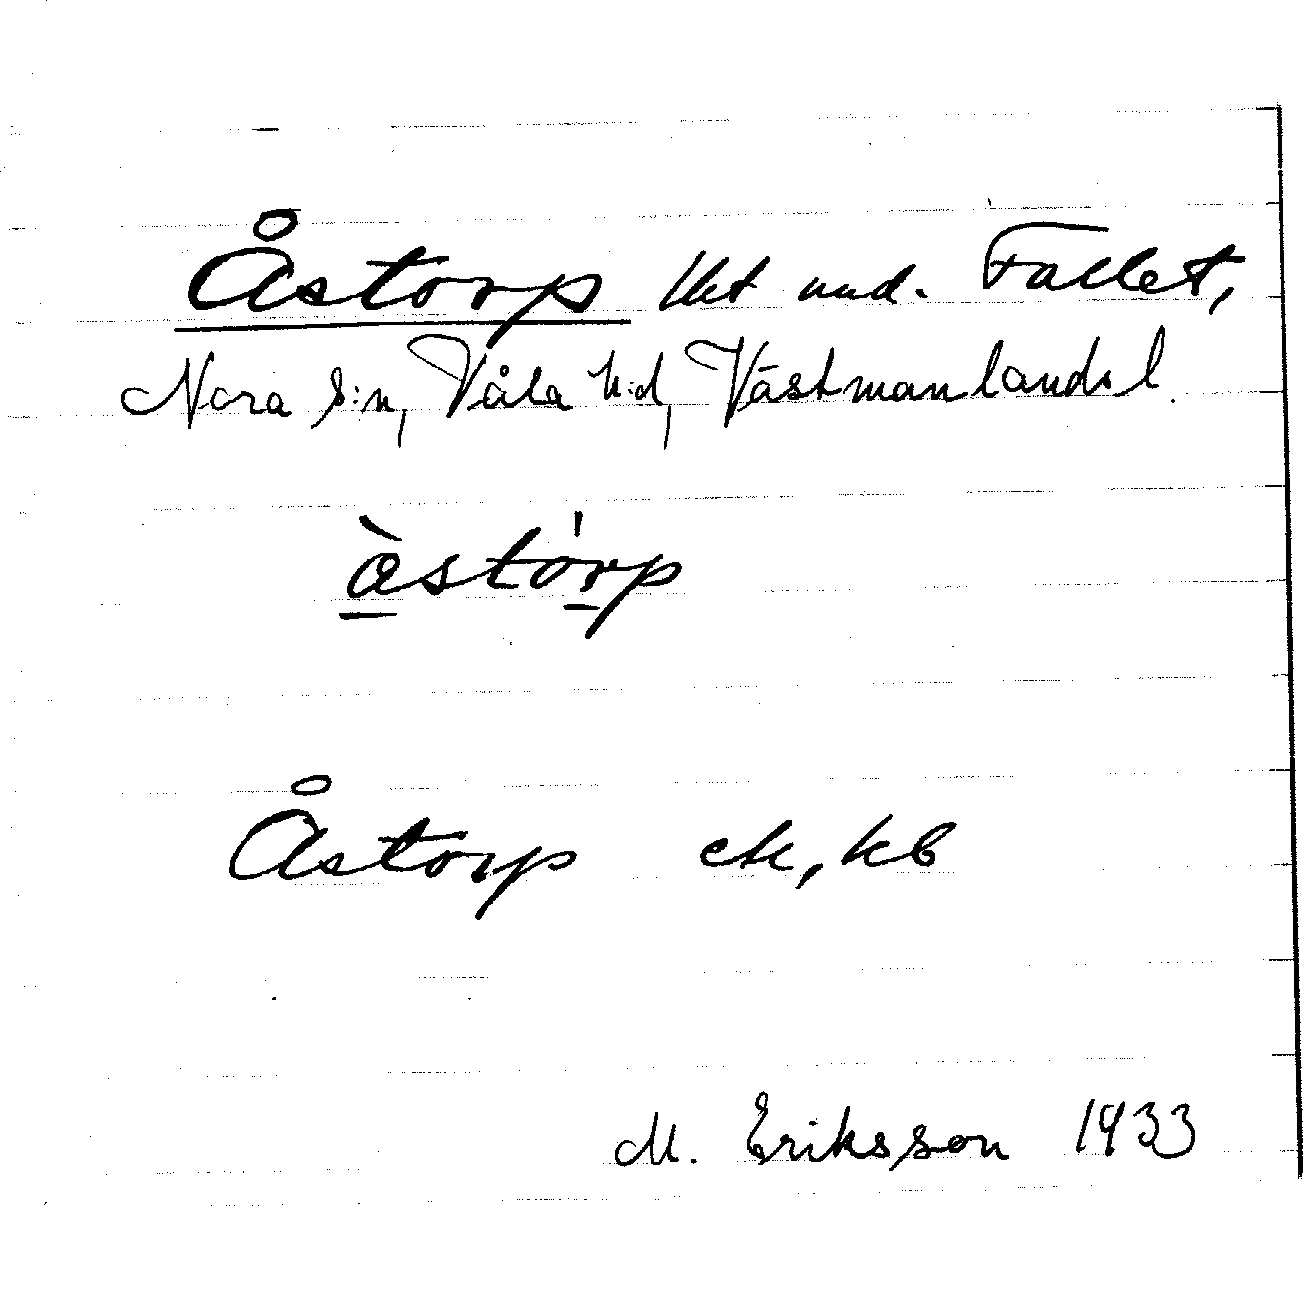 Åstorp lht und. Fallet,
Nora s:n, Våla h:d, Västmanlands l.
àstórp
Åstorp ek, kb
M. Eriksson 1933